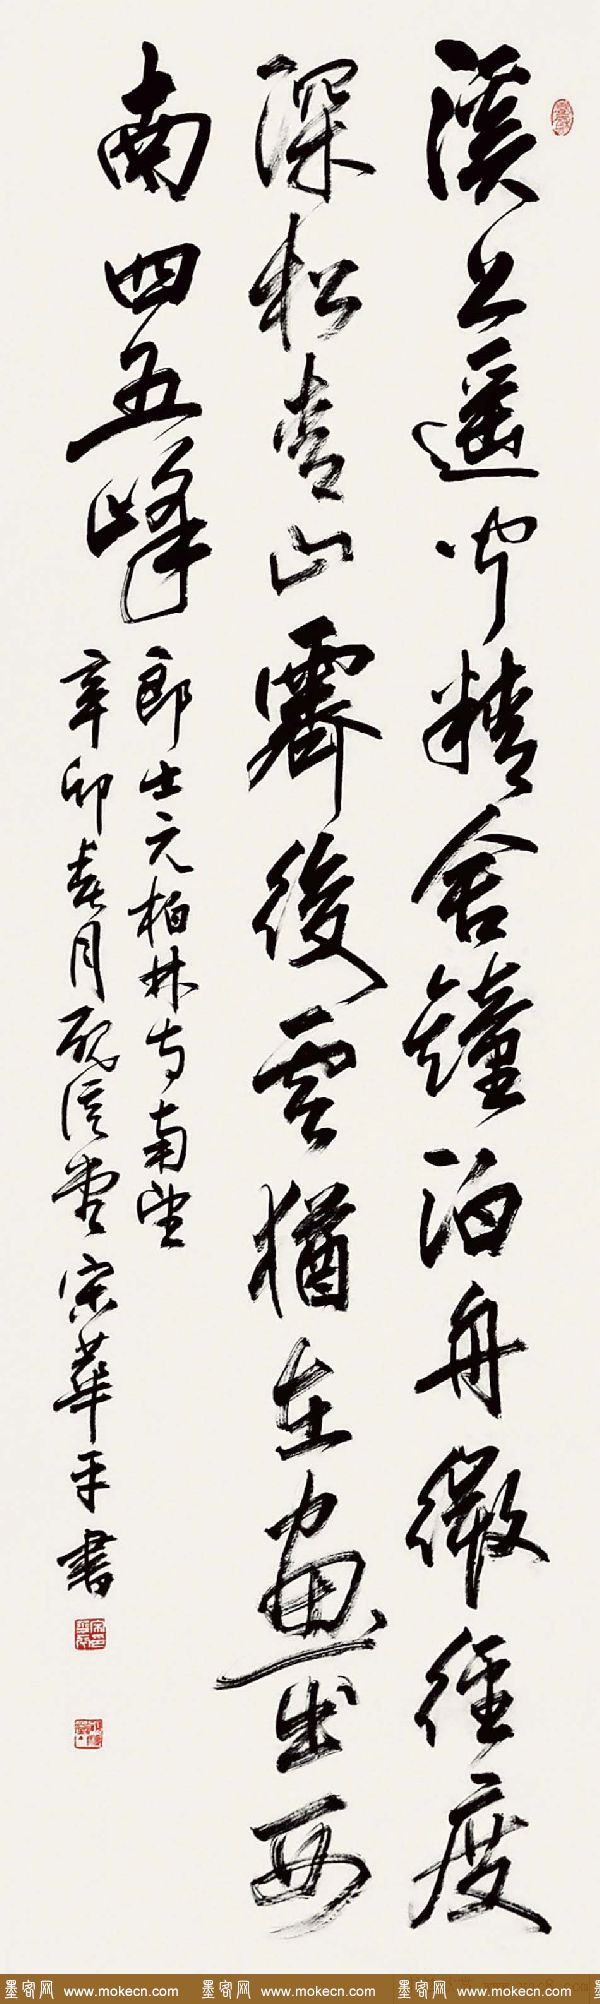 溪上遥闻精舍鐘泊舟微徑度
深松青山霽後雲猶在畫出西
南四五峰
郎士元柏林寺南望
辛卯春月 宋華平書
墨客网 www.mokecn.com 墨客网 www.mokecn.com 墨客网 www.mokecn.com